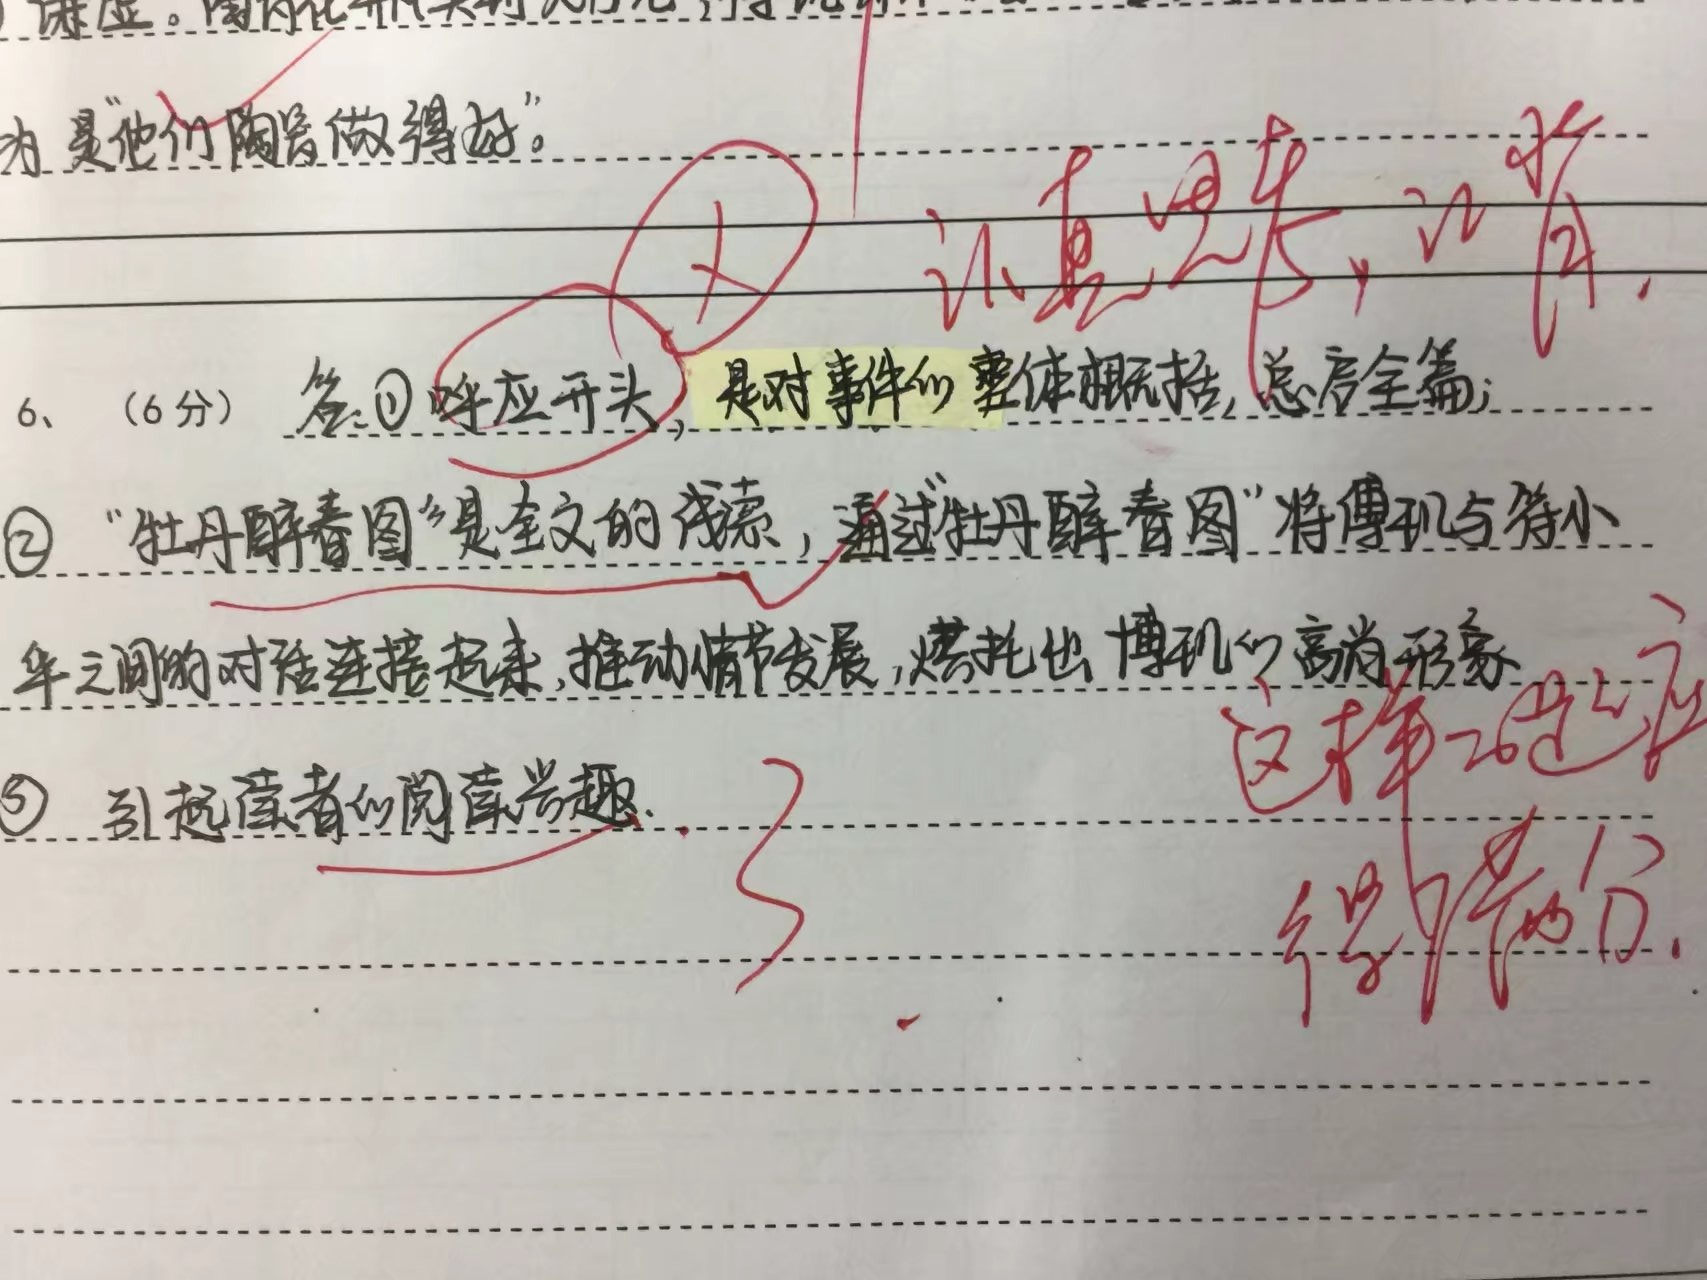 为是“他们陶瓷做得好”。
认真思考,
6、 (6分) 答:①呼应开头,是对事件的整体概括,总启全篇;
② “牡丹醉春图”是全文的线索,通过“牡丹醉春图”将傅玑与符小
年之间的对话连接起来,推动情节发展,烘托出 博玑的高尚形象
这样一道题应
③ 引起读者的阅读兴趣.
得满分.